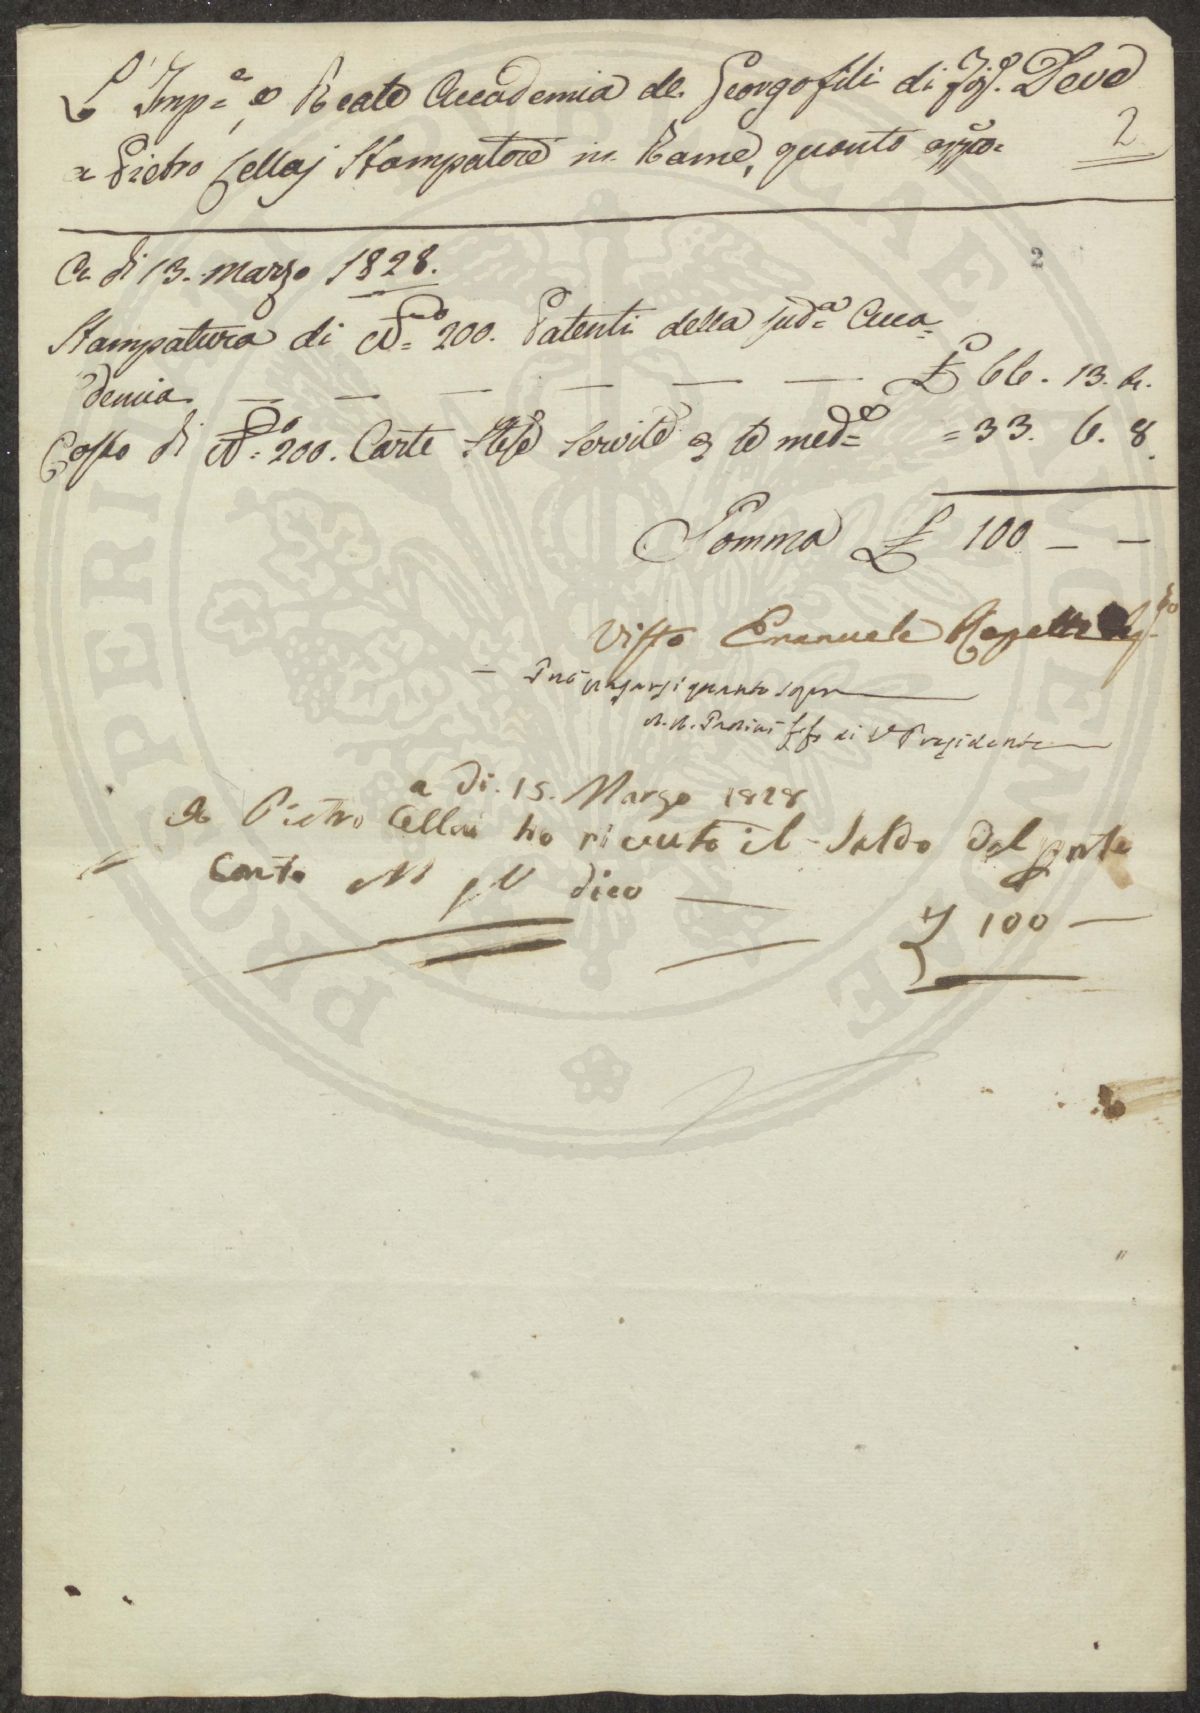 L'Imp.e e Reale Accademia de Georgofili di Deve
2
a Pietro Cellaj Stampatore in Rame, quanto appio:
2
A di 13. marzo 1828.
Stampatura di N.o 200. Patenti della sud.a Acca=
demia — — — — — — £ 66. 13. 4.
Costo di N.o 200. Carte Stesse servite p le med.e = 33. 6. 8.
Somma £ 100 — —
Visto Emanuele Repetti
— Può pagarsi quanto sopra
di V. Presidente
a di. 15. Marzo 1828
Io Pietro Cellai ho ricevuto il Saldo del pnte
Conto dico —
£ 100 —
PROSPERITATI PUBLICAE AUGENDAE